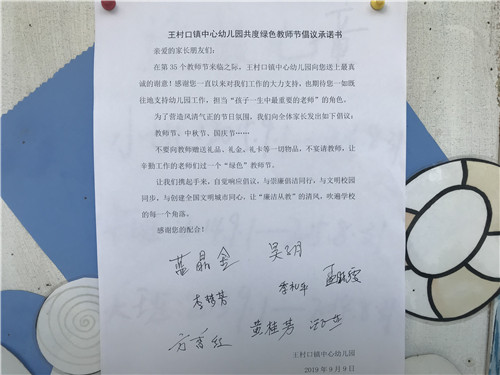 王村口镇中心幼儿园共度绿色教师节倡议承诺书
亲爱的家长朋友们：
在第 35 个教师节来临之际，王村口镇中心幼儿园向您送上最真
诚的谢意！感谢您一直以来对我们工作的大力支持，也期待您一如既
往地支持幼儿园工作，担当“孩子一生中最重要的老师”的角色。
为了营造风清气正的节日氛围，我们向全体家长发出如下倡议：
教师节、中秋节、国庆节……
不要向教师赠送礼品、礼金、礼卡等一切物品，不宴请教师，让
辛勤工作的老师们过一个“绿色”教师节。
让我们携起手来，自觉响应倡议，与崇廉倡洁同行，与文明校园
同步，与创建全国文明城市同心，让“廉洁从教”的清风，吹遍学校
的每一个角落。
感谢您的配合！
蓝晶金
李梦芳
黄桂芳
王村口镇中心幼儿园
2019 年 9 月 9 日